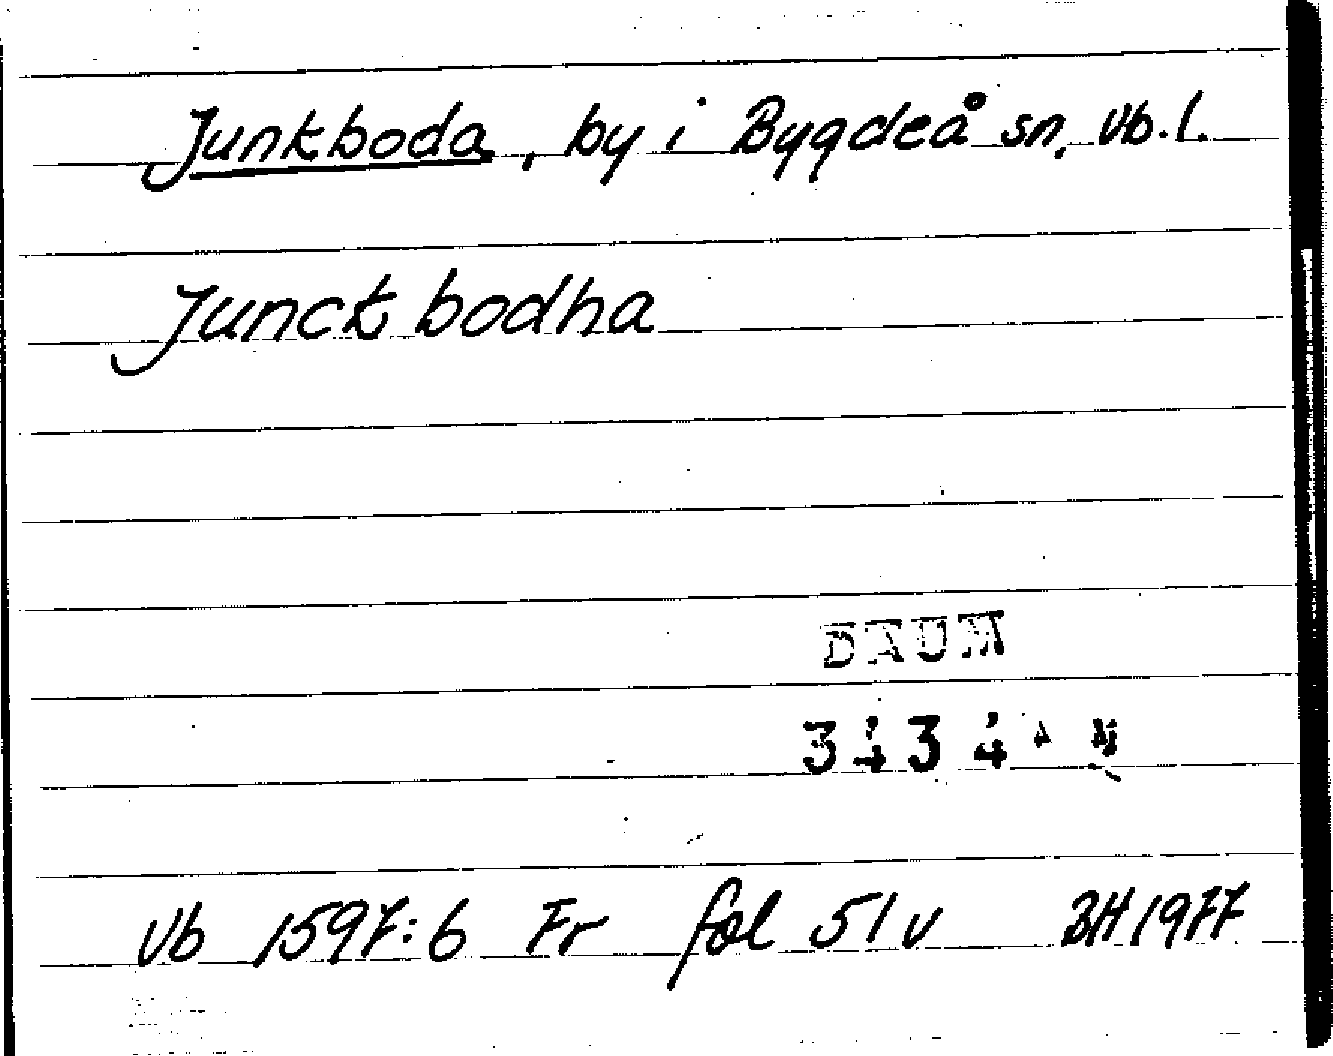 Junkboda, by i Bygdeå sn, Vb.l.
Junckbodha
DAUM
3434
Vb 1597:6 Fr fol 51v BH 1977